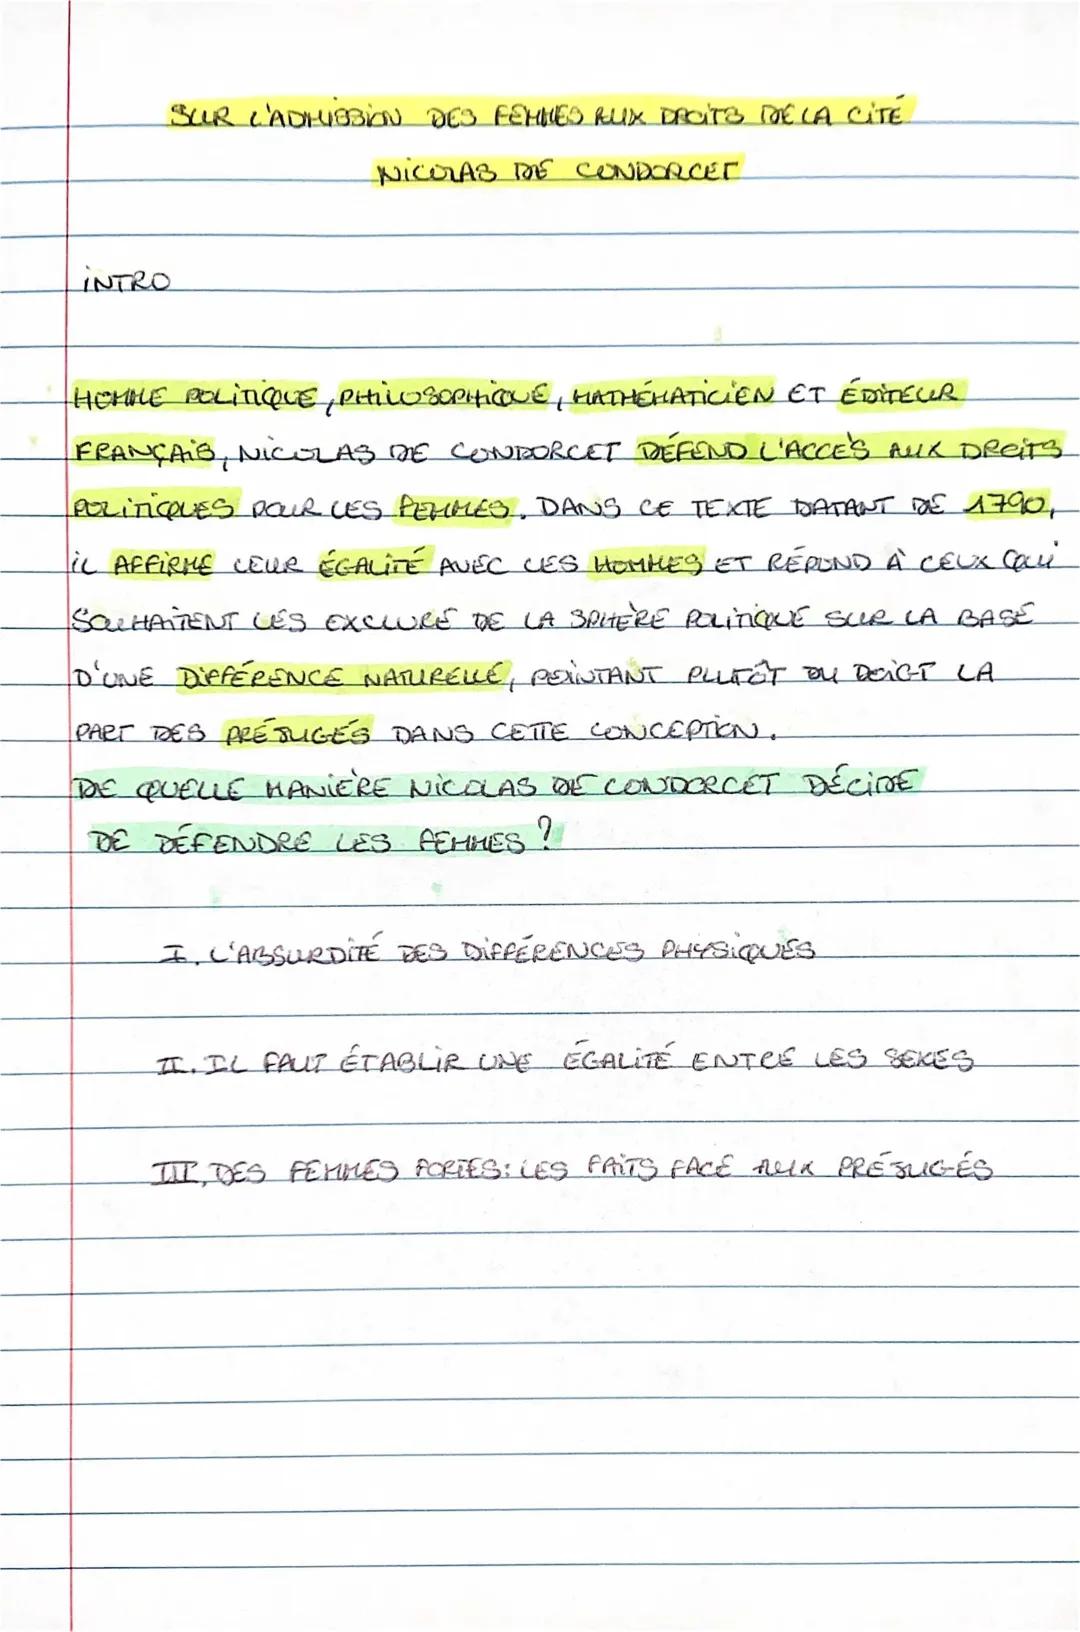 SUR L'ADMISSION DES FEMMES AUX DROITS DE LA CITÉ
NICOLAS DE CONDORCET
INTRO
HOMME POLITIQUE, PHILOSOPHIQUE, MATHÉMATICIEN ET ÉDITEUR
FRANÇAIS, NICOLAS DE CONDORCET DÉFEND L'ACCÈS AUX DROITS
POLITIQUES POUR LES FEMMES. DANS CE TEXTE DATANT DE 1790,
IL AFFIRME LEUR ÉGALITÉ AVEC LES HOMMES ET RÉPOND À CEUX QUI
SOUHAITENT LES EXCLURE DE LA SPHÈRE POLITIQUE SUR LA BASE
D'UNE DIFFÉRENCE NATURELLE, POINTANT PLUTÔT DU DOIGT LA
PART DES PRÉJUGÉS DANS CETTE CONCEPTION.
DE QUELLE MANIÈRE NICOLAS DE CONDORCET DÉCIDE
DE DÉFENDRE LES FEMMES ?
I. L'ABSURDITÉ DES DIFFÉRENCES PHYSIQUES
II. IL FAUT ÉTABLIR UNE ÉGALITÉ ENTRE LES SEXES
III. DES FEMMES FORTES: LES FAITS FACE AUX PRÉJUGÉS